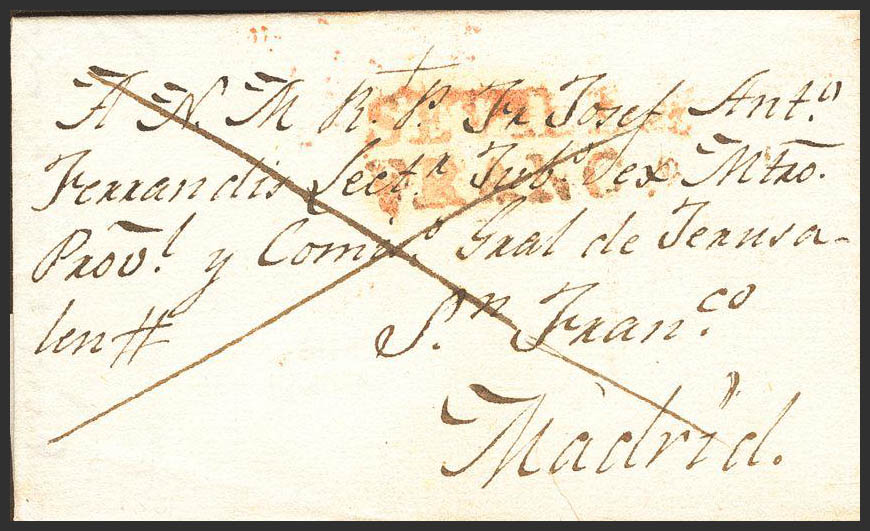 A N. M R. P. Fr Josef Ant.º
SEVILLA
FRANCO
Ferrandis Lect.r Jub.º ex Mtro.
Prov̄.l y Comis.º Gral de Jerusa-
len
S.n Fran.co
Madrid.